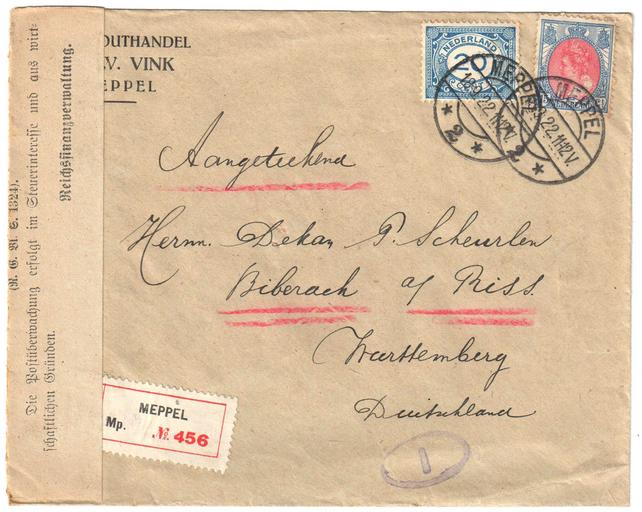 OUTHANDEL
V. VINK
EPPEL
NEDERLAND
20
MEPPEL
22.11-12V.
* 2 *
MEPPEL
22.11-12V.
* 2 *
Aangeteekend
Herrn. Dekan P. Scheurlen
Biberach a/ Riss.
Württemberg
Deutschland
MEPPEL
Mp. № 456
1
Die Postüberwachung erfolgt im Steuerinteresse und aus wirt-
schaftlichen Gründen.
Reichsfinanzverwaltung.